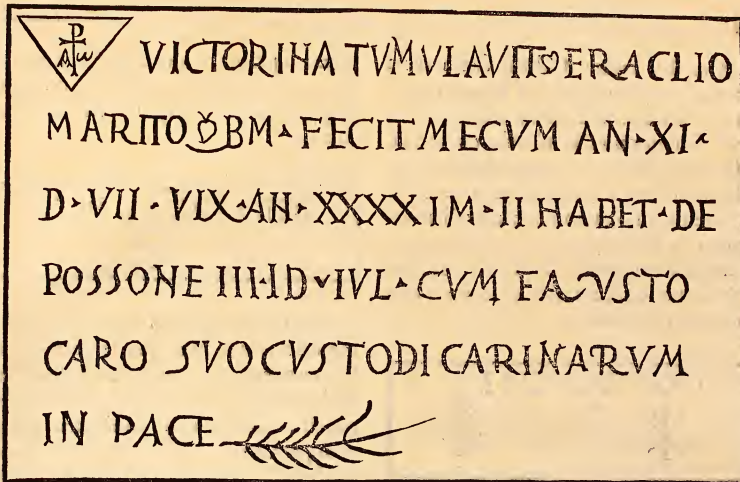 VICTORINA TVMVLAVIT ERACLIO
MARITO BM · FECIT MECVM AN · XI ·
D · VII · VIX · AN · XXXX IM · II HABET · DE
POSSONE IIII · ID · IVL · CVM FAVSTO
CARO SVO CVSTODI CARINARVM
IN PACE